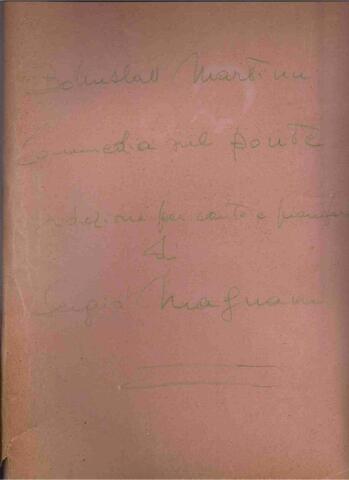 Bohuslav Martinu
Commedia sul ponte
riduzione per canto e pianoforte
di
Sergio Magnani